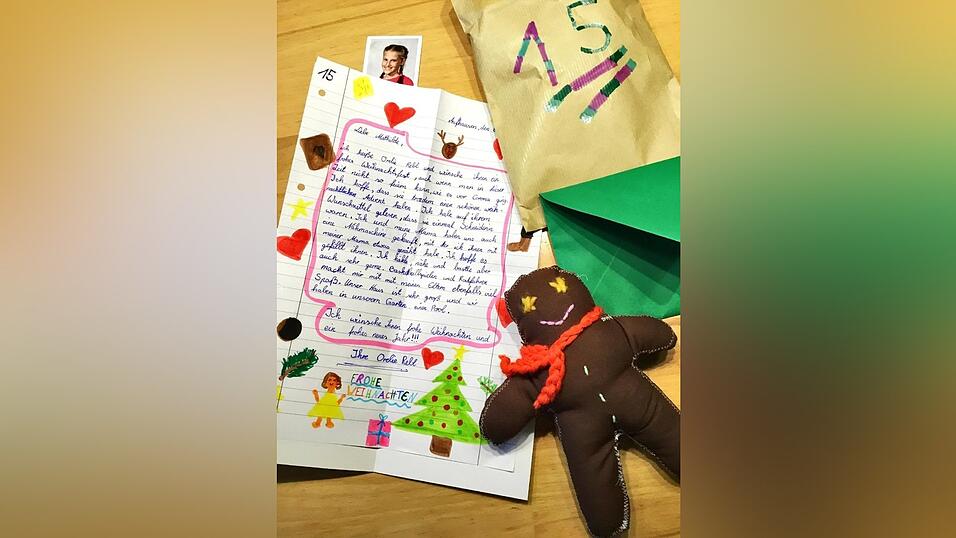 15
15
Aufhausen, den
Liebe Mathilde,
ich heiße Orelie Kebl und wünsche ihnen ein
frohes Weihnachtsfest, auch wenn man in dieser
Zeit nicht so feiern kann, wie es vor Corona ging.
Ich hoffe, dass sie trozdem einen schönen weih-
nachtlichen Advent haben. Ich habe auf ihrem
Wunschzettel gelesen, dass sie einmal Schneiderin
waren. Ich und meine Mama haben uns auch
eine Nähmaschine gekauft, mit der ich ihnen mit
meiner Mama etwas genäht habe. Ich hoffe es
gefällt ihnen. Ich nähe und bastle aber
auch sehr gerne. Basketballspielen und Radfahren
macht mir mit meinen Eltern ebenfalls viel
Spaß. Unser Haus ist sehr groß und wir
haben in unserem Garten einen Pool.
Ich wünsche ihnen frohe Weihnachten und
ein frohes neues Jahr!!!
Ihre Orelie Kebl
FROHE
WEIHNACHTEN